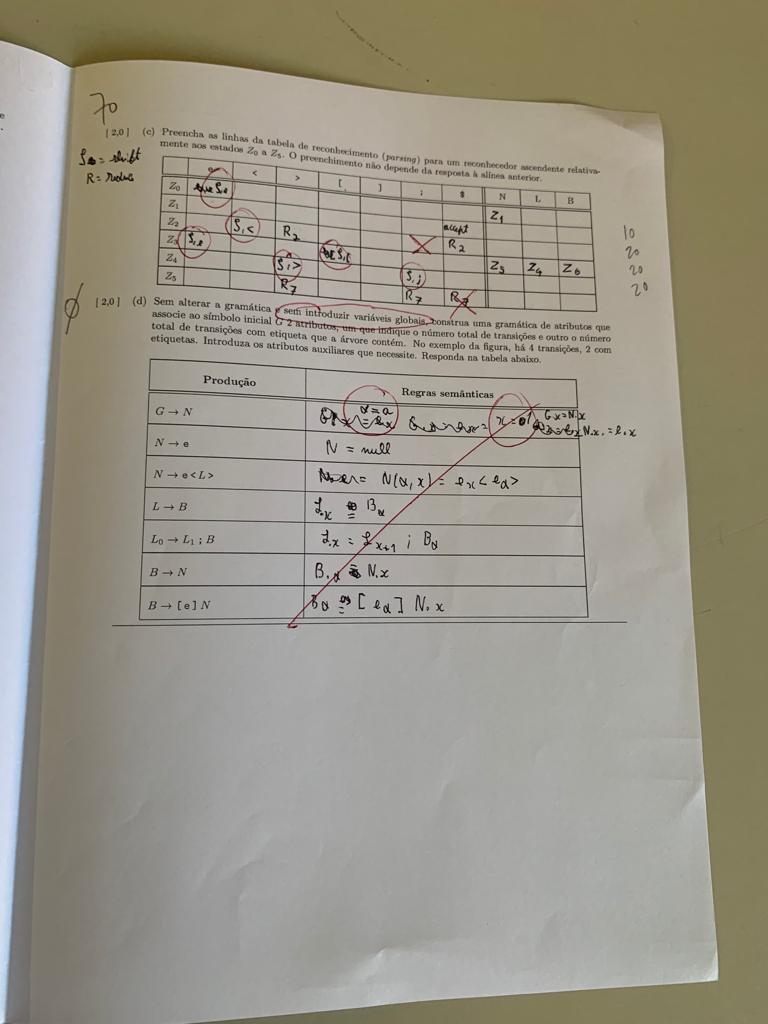 70
[2,0] (c) Preencha as linhas da tabela de reconhecimento (parsing) para um reconhecedor ascendente relativa-
mente aos estados Z0 a Z5. O preenchimento não depende da resposta à alínea anterior.
= shift
R = reduce
e < > [ ] ; $ N L B
Z0 Z1
Z1 accept
Z2 S, < R2 R2 10
Z3 S, e Z5 Z4 Z6 20
Z4 S, > S, ; 20
Z5 R7 R7 R7 20
[2,0] (d) Sem alterar a gramática e sem introduzir variáveis globais, construa uma gramática de atributos que
associe ao símbolo inicial G 2 atributos, um que indique o número total de transições e outro o número
total de transições com etiqueta que a árvore contém. No exemplo da figura, há 4 transições, 2 com
etiquetas. Introduza os atributos auxiliares que necessite. Responda na tabela abaixo.
Produção Regras semânticas
G → N α = a x = 0 G.x = N.x
N.x. = e.x
N → e N = null
N → e < L > N(α, x) = ex < eα >
L → B L.x = Bα
L0 → L1 ; B L.x = Lx+1 ; Bα
B → N B.α = N.x
B → [ e ] N Bα = [ eα ] N.x